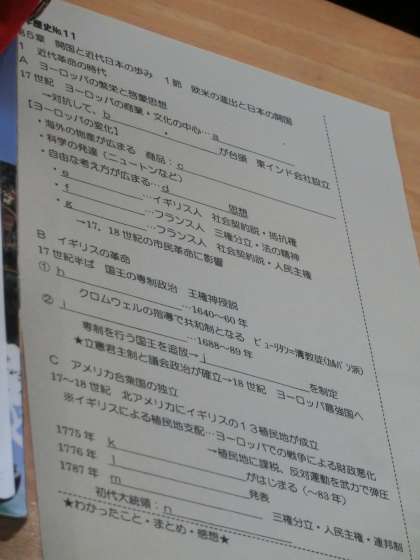 歴史No.11
5章 開国と近代日本の歩み 1節 欧米の進出と日本の開国
1 近代革命の時代
A ヨーロッパの繁栄と啓蒙思想
17世紀 ヨーロッパの商業・文化の中心…a
→対抗して、b ・ が台頭 東インド会社設立
【ヨーロッパの変化】
・海外の物産が広まる 商品:c
・科学の発達(ニュートンなど)
・自由な考え方が広まる…d 思想
・e …イギリス人 社会契約説・抵抗権
・f …フランス人 三権分立・法の精神
・g …フランス人 社会契約説・人民主権
→17,18世紀の市民革命に影響
B イギリスの革命
17世紀半ば 国王の専制政治 王権神授説
① h …1640~60年
クロムウェルの指導で共和制となる ピューリタン=清教徒(カルバン派)
② i …1688~89年
専制を行う国王を追放→j を制定
★立憲君主制と議会政治が確立→18世紀 ヨーロッパ最強国へ
C アメリカ合衆国の独立
17~18世紀 北アメリカにイギリスの13植民地が成立
※イギリスによる植民地支配…ヨーロッパでの戦争による財政悪化
→植民地に課税、反対運動を武力で弾圧
1775年 k がはじまる(~83年)
1776年 l 発表
1787年 m 三権分立・人民主権・連邦制
初代大統領:n
★わかったこと・まとめ・感想★